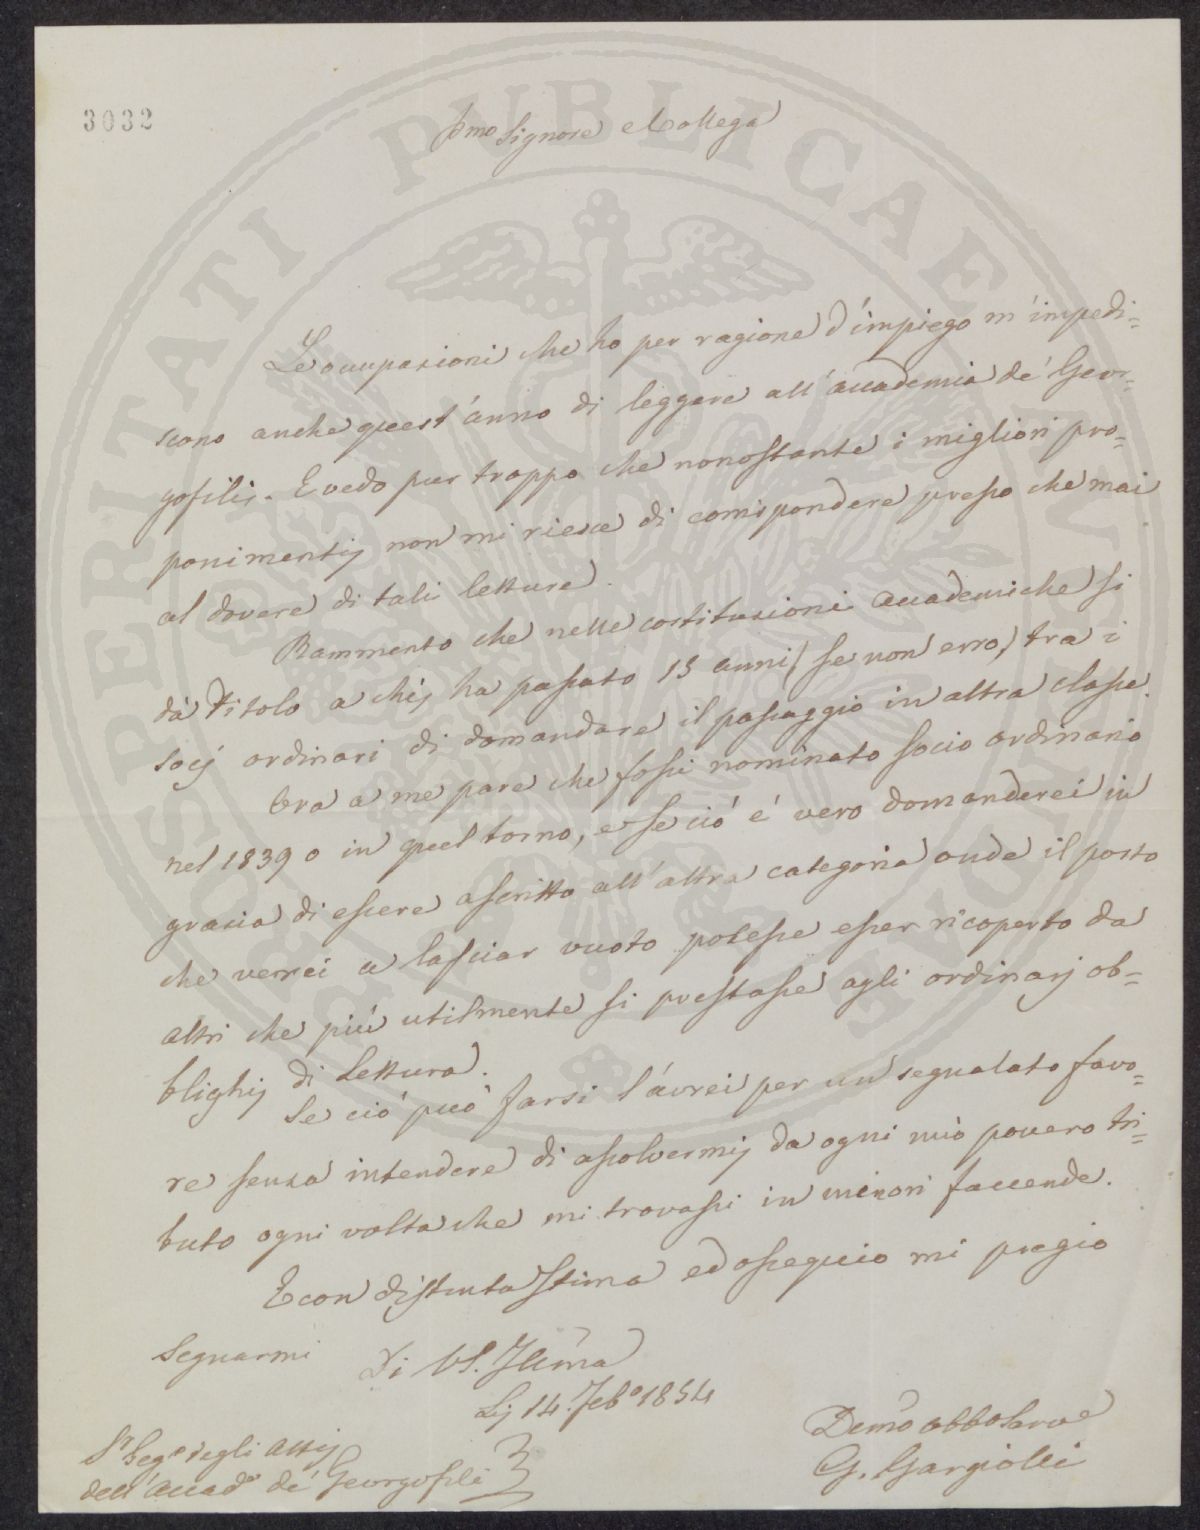 3032
Pmo Signore e Collega
Le occupazioni che ho per ragione d'impiego m'impedi=
scono anche quest'anno di leggere all'accademia de' Geor=
gofili. E vedo pur troppo che nonostante i migliori pro=
ponimenti non mi riesce di corrispondere presso che mai
al dovere di tali letture.
Rammento che nelle costituzioni accademiche si
dà titolo a chi ha passato 15 anni (se non erro) tra i
socj ordinari di domandare il passaggio in altra classe.
Ora a me pare che fossi nominato socio ordinario
nel 1839 o in quel torno, e se ciò é vero domanderei in
grazia di essere ascritto all'altra categoria onde il posto
che verrei a lasciar vuoto potesse esser ricoperto da
altri che più utilmente si prestasse agli ordinarj ob=
blighi di Lettura.
Se ciò può farsi l'avrei per un segnalato favo=
re senza intendere di assolvermi da ogni mio povero tri=
buto ogni volta che mi trovassi in minori faccende.
E con distinta stima ed ossequio mi pregio
segnarmi Di VS. Illma
Li 14. Febo 1854
Demo obbo Serve
G. Gargiolli
Sr Sego degli Atti
dell'Accada de' Georgofili
PROSPERITATI PUBLICAE AUGENDAE